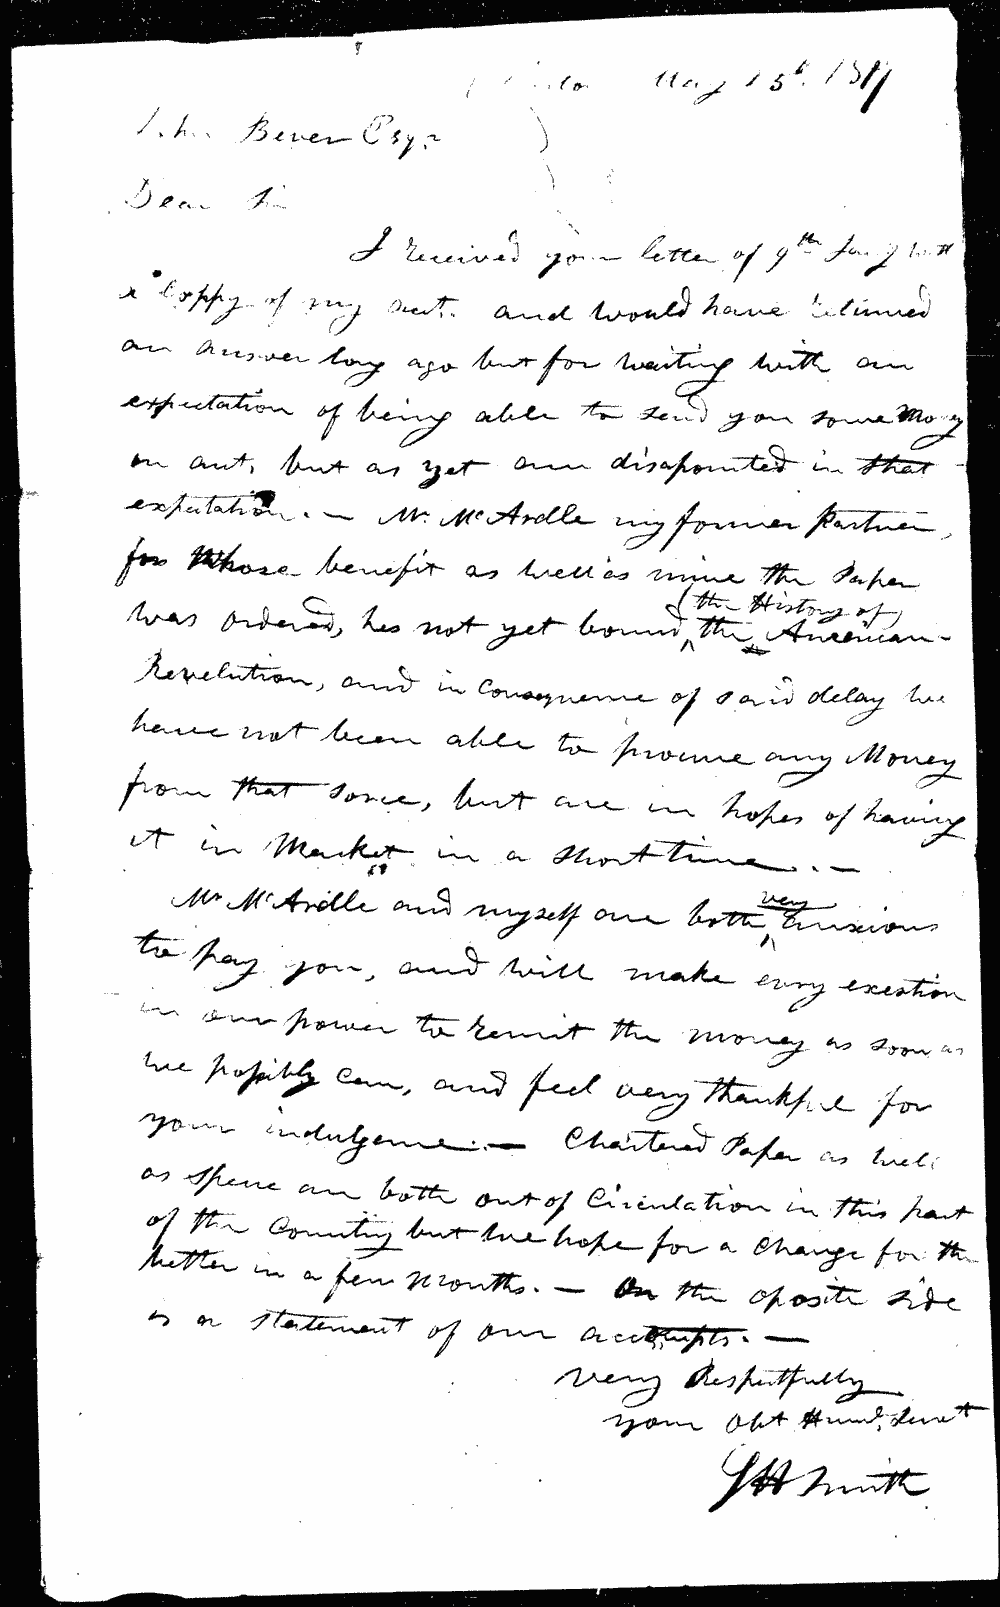 May 15th. 18
John Bever Esqr
Dear Sir
I received your letter of 9th Jany with
a Coppy of my acct. and would have returned
an answer long ago but for waiting with an
expectation of being able to send you some Money
on acct, but as yet am disapointed in that
expectation. — Mr. McArdle my former Partner,
for Whose benefit as well as mine the Paper
was ordered, hes not yet bound the (the History of)
American
Revelution, and in Consequence of said delay we
have not been able to procure any Money
from that sorce, but are in hopes of having
it in Market in a short time. —
Mr McArdle and myself are both very anxious
to pay you, and will make evry exertion
in our power to remit the money as soon as
we possibly can, and feel very thankful for
your indulgence. — Chartered Paper as well
as specie are both out of Circulation in this part
of the Country but we hope for a change for the
better in a few Months. — On the oposite side
is a statement of our accompts. —
very Respectfully
your Obt Humb. Servt
Smith